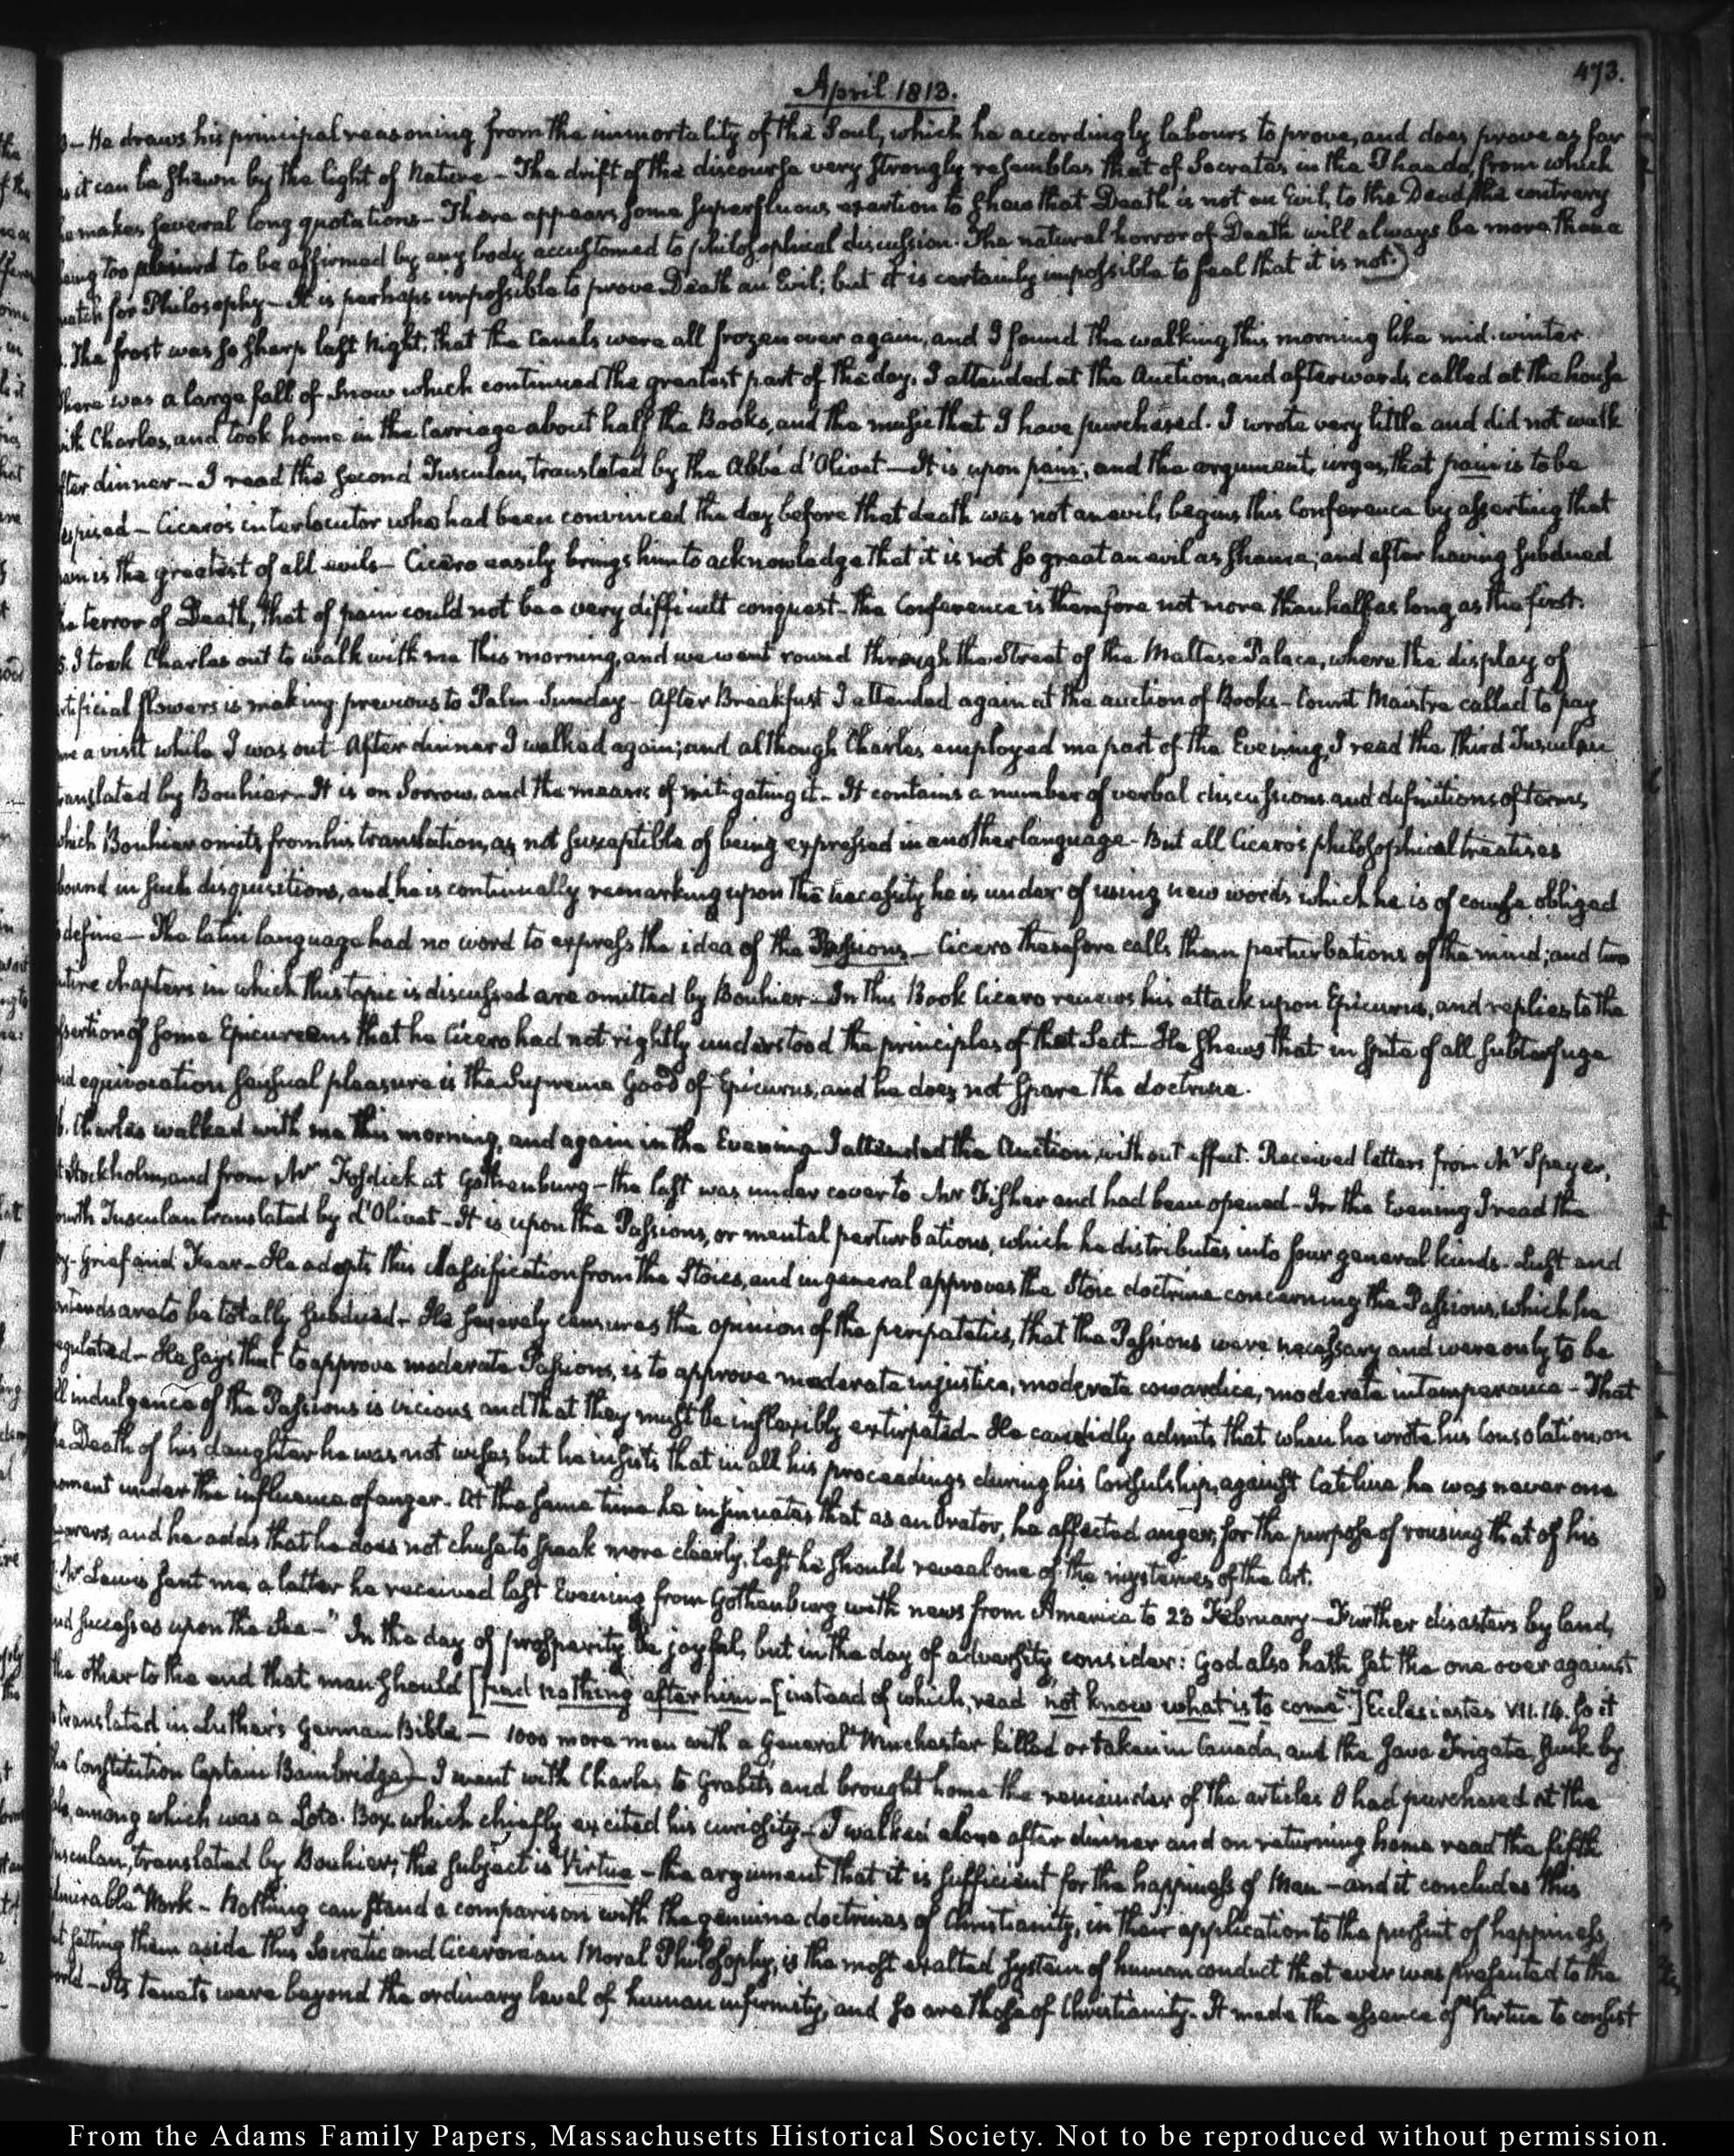 473.
April 1813.
3 — He draws his principal reasoning from the immortality of the Soul, which he accordingly labours to prove, and does prove as far
as it can be shewn by the light of Nature — The drift of the discourse very strongly resembles that of Socrates in the Phaedo, from which
he makes several long quotations — There appears some superfluous exertion to shew that Death is not an Evil, to the Dead, the contrary
being too absurd to be affirmed by any body accustomed to philosophical discussion. The natural horror of Death will always be more than a
match for Philosophy — It is perhaps impossible to prove Death an Evil; but it is certainly impossible to feel that it is not.)
The frost was so sharp last Night, that the Canals were all frozen over again, and I found the walking this morning like mid-winter
There was a large fall of Snow which continued the greatest part of the day. I attended at the Auction, and afterwards called at the house
with Charles, and took home in the Carriage about half the Books, and the music that I have purchased. I wrote very little and did not walk
after dinner — I read the second Tusculan, translated by the Abbé d'Olivet — It is upon pain; and the argument urges, that pain is to be
despised — Cicero's interlocutor who had been convinced the day before that death was not an evil, begins this Conference by asserting that
pain is the greatest of all evils — Cicero easily brings him to acknowledge that it is not so great an evil as shame; and after having subdued
the terror of Death, that of pain could not be a very difficult conquest — the Conference is therefore not more than half as long as the first.
5. I took Charles out to walk with me this morning, and we went round through the Street of the Maltese Palace, where the display of
artificial flowers is making previous to Palm-Sunday — After Breakfast I attended again at the auction of Books — Count Maistre called to pay
me a visit while I was out — After dinner I walked again; and although Charles employed me part of the Evening, I read the Third Tusculan
translated by Bouhier — It is on Sorrow, and the means of mitigating it — It contains a number of verbal discussions and definitions of terms,
which Bouhier omits from his translation, as not susceptible of being expressed in another language — But all Cicero's philosophical treatises
abound in such disquisitions, and he is continually remarking upon the necessity he is under of using new words which he is of course obliged
to define — The latin language had no word to express the idea of the Passions — Cicero therefore calls them perturbations of the mind; and two
entire chapters in which this topic is discussed are omitted by Bouhier — In this Book Cicero renews his attack upon Epicurus, and replies to the
assertion of some Epicureans that he Cicero had not rightly understood the principles of that Sect — He shews that in spite of all subterfuge
and equivocation sensual pleasure is the Supreme Good of Epicurus, and he does not spare the doctrine.
6. Charles walked with me this morning, and again in the Evening — I attended the Auction, without effect. Received letters from Mr Speyer,
at Stockholm, and from Mr Fosdick at Gothenburg — the last was under cover to Mr Fisher and had been opened — In the Evening I read the
fourth Tusculan translated by d'Olivet — It is upon the Passions, or mental perturbations, which he distributes into four general kinds. Lust and
Joy — Grief and Fear — He adopts this classification from the Stoics, and in general approves the Stoic doctrine concerning the Passions, which he
contends are to be totally subdued — He severely censures the opinion of the peripatetics, that the Passions were necessary and were only to be
regulated — He says that to approve moderate Passions, is to approve moderate injustice, moderate cowardice, moderate intemperance — That
all indulgence of the Passions is vicious and that they must be inflexibly extirpated — He candidly admits that when he wrote his Consolation, on
the Death of his daughter he was not wise, but he insists that in all his proceedings during his Consulship, against Catiline, he was never one
moment under the influence of anger. At the same time he insinuates that as an Orator, he affected anger, for the purpose of rousing that of his
hearers, and he adds that he does not chuse to speak more clearly, lest he should reveal one of the mysteries of the Art.
Mr Lewis sent me a letter he received last Evening from Gothenburg with news from America to 23 February — Further disasters by land,
and successes upon the Sea — "In the day of prosperity be joyful, but in the day of adversity consider: God also hath set the one over against
the other to the end that man should [find nothing after him — [instead of which, read "not know what is to come"] Ecclesiastes VII. 14. So it
is translated in Luther's German Bible — 1000 more men with a General Winchester killed or taken in Canada, and the Java Frigate, sunk by
the Constitution Captain Bainbridge) — I went with Charles to Grabit's and brought home the remainder of the articles I had purchased at the
sale, among which was a Loto-Box, which chiefly excited his curiosity — I walked alone after dinner and on returning home read the fifth
Tusculan, translated by Bouhier; the subject is Virtue — the argument that it is sufficient for the happiness of Man — and it concludes this
admirable Work — Nothing can stand a comparison with the genuine doctrines of Christianity, in their application to the pursuit of happiness,
but setting them aside this Socratic and Ciceronian Moral Philosophy, is the most exalted system of human conduct that ever was presented to the
world — Its tenets were beyond the ordinary level of human infirmity, and so are those of Christianity. It made the essence of Virtue to consist
From the Adams Family Papers, Massachusetts Historical Society. Not to be reproduced without permission.